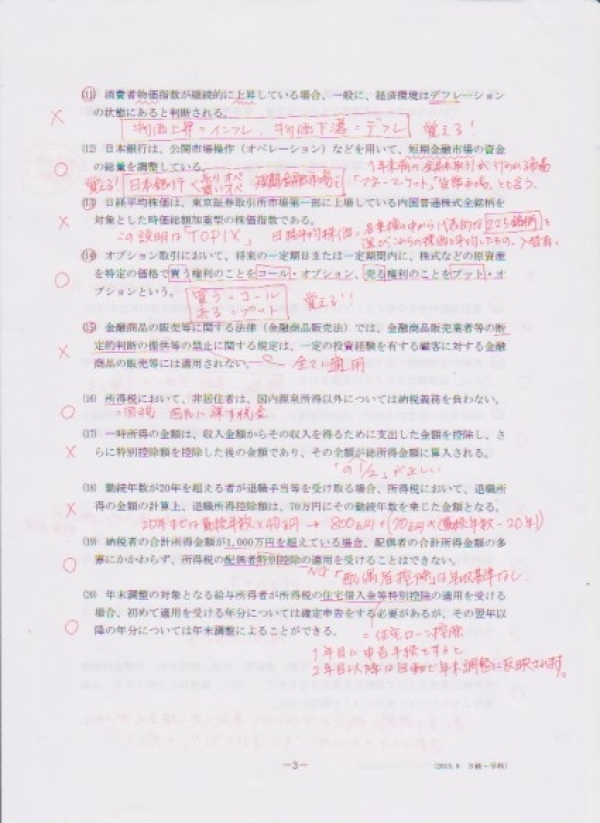 (11) 消費者物価指数が継続的に上昇している場合、一般に、経済環境はデフレーション
の状態にあると判断される。
×
物価上昇=インフレ、物価下落=デフレ 覚えろ!
(12) 日本銀行は、公開市場操作(オペレーション)などを用いて、短期金融市場の資金
の総量を調整している。
○
覚えろ! 日本銀行
「マネーマーケット」
(13) 日経平均株価は、東京証券取引所市場第一部に上場している内国普通株式全銘柄を
対象とした時価総額加重型の株価指数である。
×
この説明は「TOPIX」 日経平均株価 225銘柄
(14) オプション取引において、将来の一定期日または一定期間内に、株式などの原資産
を特定の価格で買う権利のことをコール・オプション、売る権利のことをプット・オ
プションという。
○
買う=コール
売る=プット
覚えろ!!
(15) 金融商品の販売等に関する法律(金融商品販売法)では、金融商品販売業者等の断
定的判断の提供等の禁止に関する規定は、一定の投資経験を有する顧客に対する金融
商品の販売等には適用されない。
×
全てに適用
(16) 所得税において、非居住者は、国内源泉所得以外については納税義務を負わない。
○
=国税 国民に課す税金
(17) 一時所得の金額は、収入金額からその収入を得るために支出した金額を控除し、さ
らに特別控除額を控除した後の金額であり、その全額が総所得金額に算入される。
×
"の1/2"が正しい
(18) 勤続年数が20年を超える者が退職手当等を受け取る場合、所得税において、退職所
得の金額の計算上、退職所得控除額は、70万円にその勤続年数を乗じた金額となる。
×
20年までは勤続年数×40万円 → 800万円+{70万円×(勤続年数-20年)}
(19) 納税者の合計所得金額が1,000万円を超えている場合、配偶者の合計所得金額の多
寡にかかわらず、所得税の配偶者特別控除の適用を受けることはできない。
○
「配偶者控除」は年収基準なし
(20) 年末調整の対象となる給与所得者が所得税の住宅借入金等特別控除の適用を受ける
場合、初めて適用を受ける年分については確定申告をする必要があるが、その翌年以
降の年分については年末調整によることができる。
○
=住宅ローン控除
1年目に申告手続をすると
2年目以降は自動で年末調整に反映されます。
-3-
(2015.9 3級・学科)